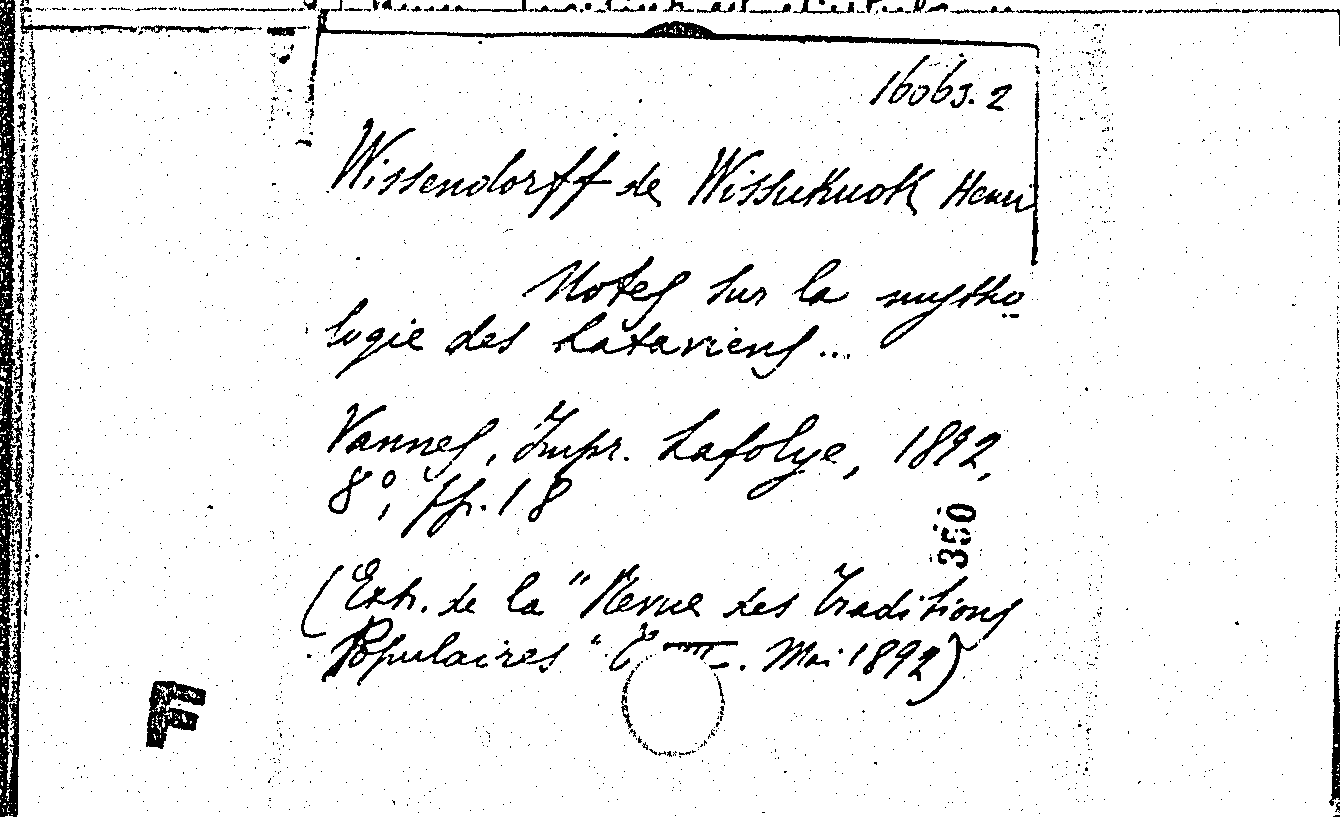 16063.2
Wissendorff de Wissukuok Henri
Notes sur la mytho
logie des Lataviens...
Vannes, Impr. Lafolye, 1892,
8°, pp. 18
350
(Extr. de la "Revue des Traditions
Populaires" Mai 1892)
F